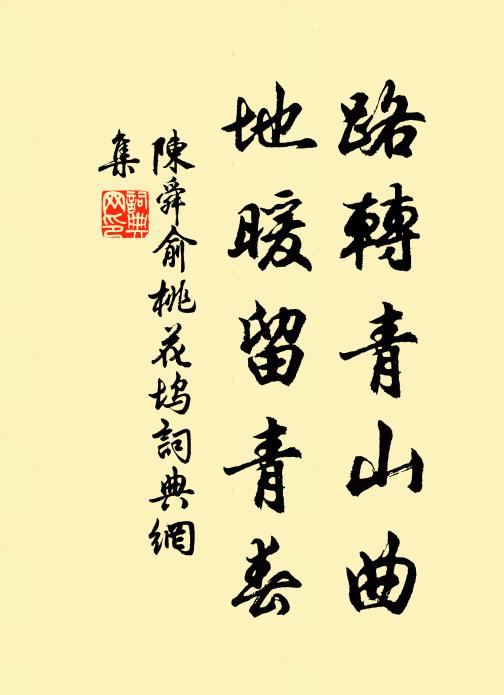 路轉青山曲
地暖留青春
陳舜俞桃花塢詞典網
集
詞典
网印